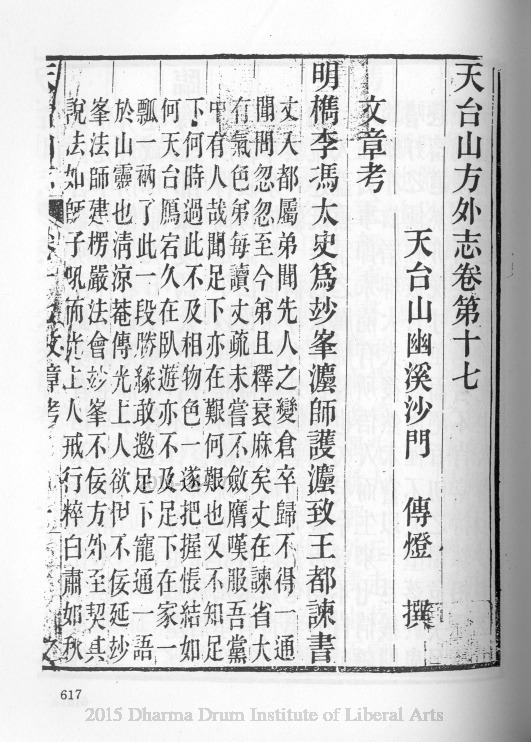 天台山方外志卷第十七
天台山幽溪沙門 傳燈 撰
文章考
明檇李馮太史為玅峯灋師護灋致王都諫書
丈入都屬弟聞先人之變倉卒歸不得一通
聞問忽忽至今弟且釋衰麻矣丈在諫省大
有氣色弟每讀丈疏未嘗不斂膺嘆服吾黨
中有人哉聞足下亦在艱何艱也又不知足
下何時過此不及相物色一遂把握悵結如
何天台鴈宕久在臥遊亦不及足下在家一
瓢衲了此一段勝緣敢邀足下寵通一語
於山靈也清涼菴傳光上人欲伊不佞延玅
峯法師建楞嚴法會玅峯不佞方外至契其
說法如師子吼而光上人戒行粹白肅如秋
617
2015 Dharma Drum Institute of Liberal Arts